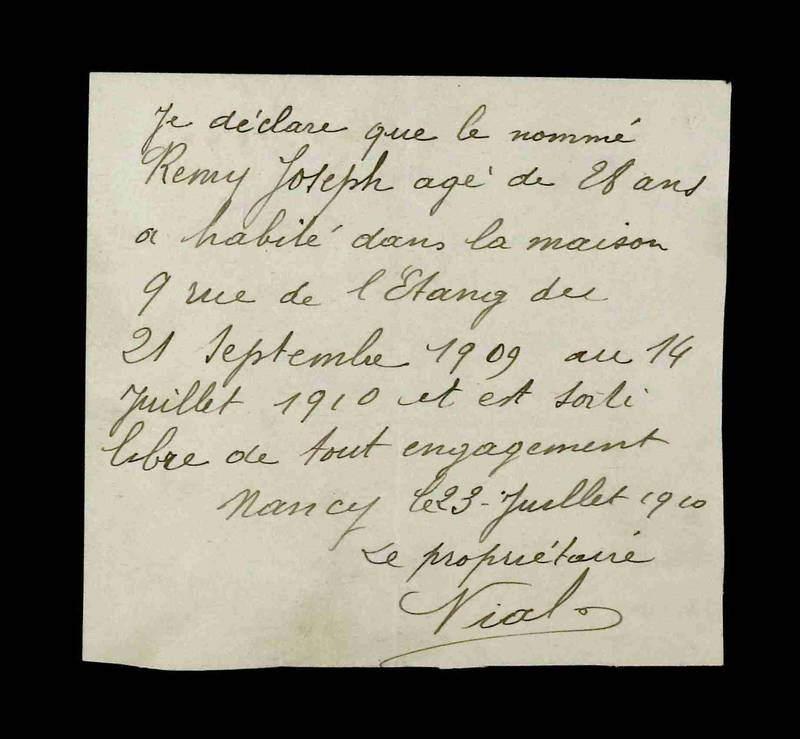 Je déclare que le nommé
Remy Joseph agé de 28 ans
a habité dans la maison
9 rue de l'Étang du
21 Septembre 1909 au 14
Juillet 1910 et est sorti
libre de tout engagement
Nancy le 23 - Juillet 1910
Le propriétaire
Vial